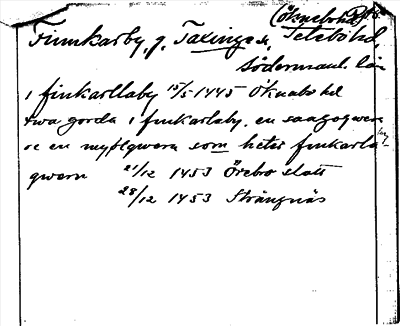 (Öknebo hd
Funkarby, g. Taxinge sn, Selebo hd,
Södermanl. län
i finkarllaby 15/5 1445 Öknabo hd
twa gorda i finkarlaby. en saagogwern
oc en myölqwern som heter finkarla
qwern 21/12 1453 Örebro slott
28/12 1453 Strängnäs